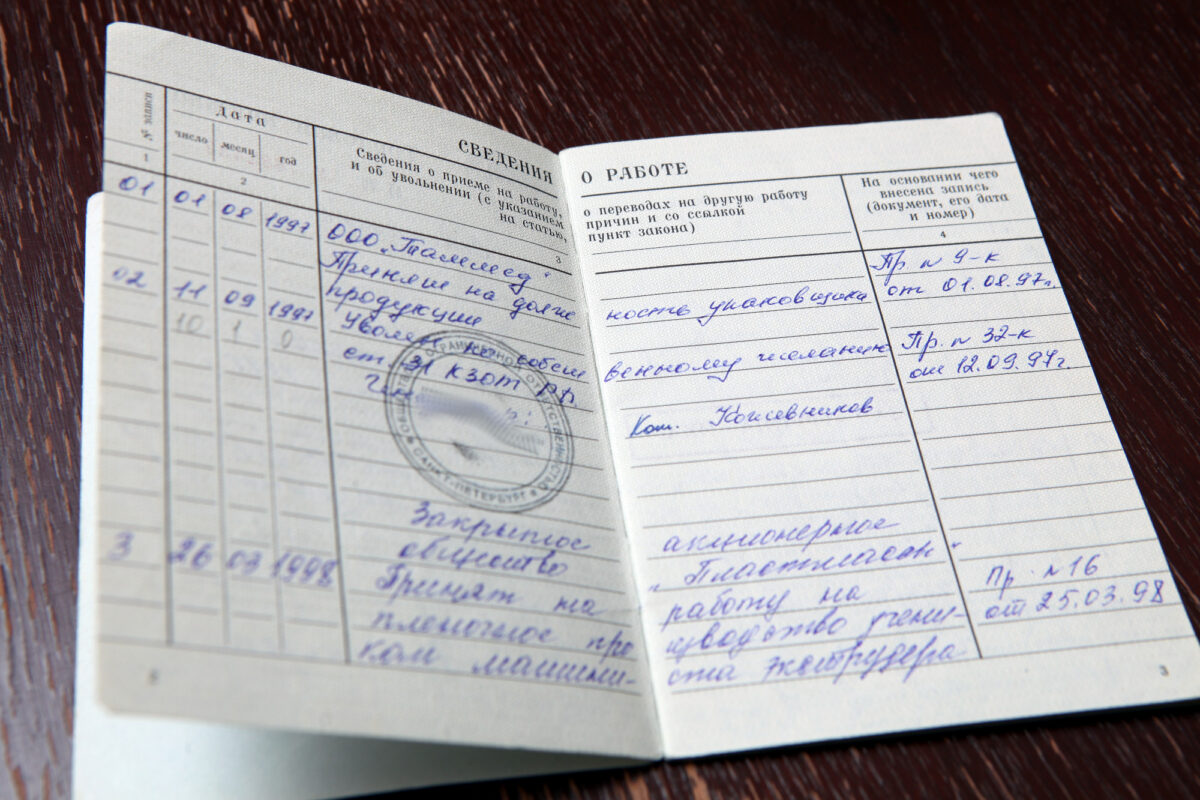 СВЕДЕНИЯ О РАБОТЕ
№ записи
Дата
число месяц год
Сведения о приеме на работу,
и об увольнении (с указанием
на статью,
о переводах на другую работу
причин и со ссылкой
пункт закона)
На основании чего
внесена запись
(документ, его дата
и номер)
1 2 3 4
01 01 08 1997 ООО „Таммед"
Пр. n 9-к
Принят на долж ность упаковщика от 01.08.97г.
продукции
02 11 09 1997 Уволен по собст венному желанию Пр. n 32-к
от 12.09.97г.
10 1 0
ст 31 КЗОТ РФ
Кож. Кожевников
ОБЩЕСТВО С ОГРАНИЧЕННОЙ ОТВЕТСТВЕННОСТЬЮ
САНКТ-ПЕТЕРБУРГ
Закрытое акционерное
общество „
3 26 03 1998 Принят на работу на Пр. n 16
пленочное про изводство учени- от 25.03.98
ком машини- ста экструдера
3